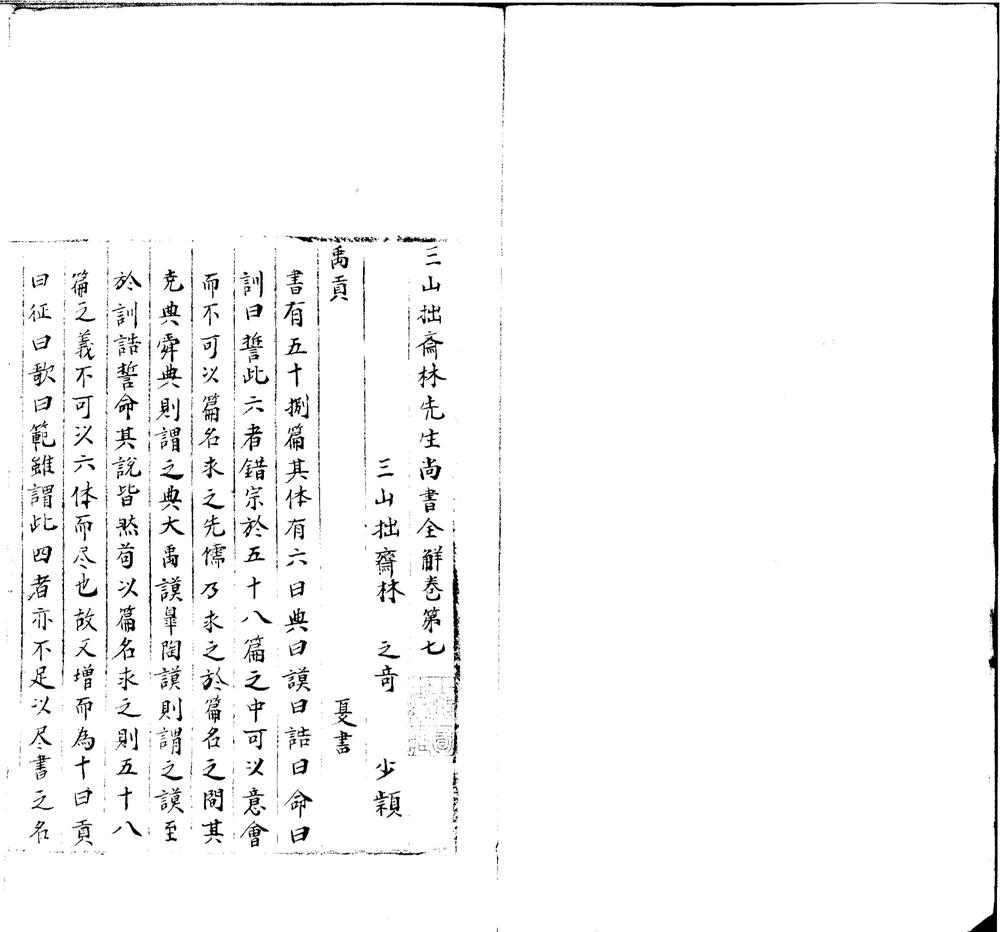 三山拙斋林先生尚書全觧卷第七
三山拙齋林 之奇 少頴
禹貢 夏書
書有五十捌篇其体有六曰典曰謨曰誥曰命曰
訓曰誓此六者錯宗於五十八篇之中可以意會
而不可以篇名求之先儒乃求之於篇名之間其
尭典舜典則謂之典大禹謨皐陶謨則謂之謨至
於訓誥誓命其說皆然苟以篇名求之則五十八
篇之義不可以六体而尽也故又增而為十曰貢
曰征曰歌曰範雖謂此四者亦不足以尽書之名